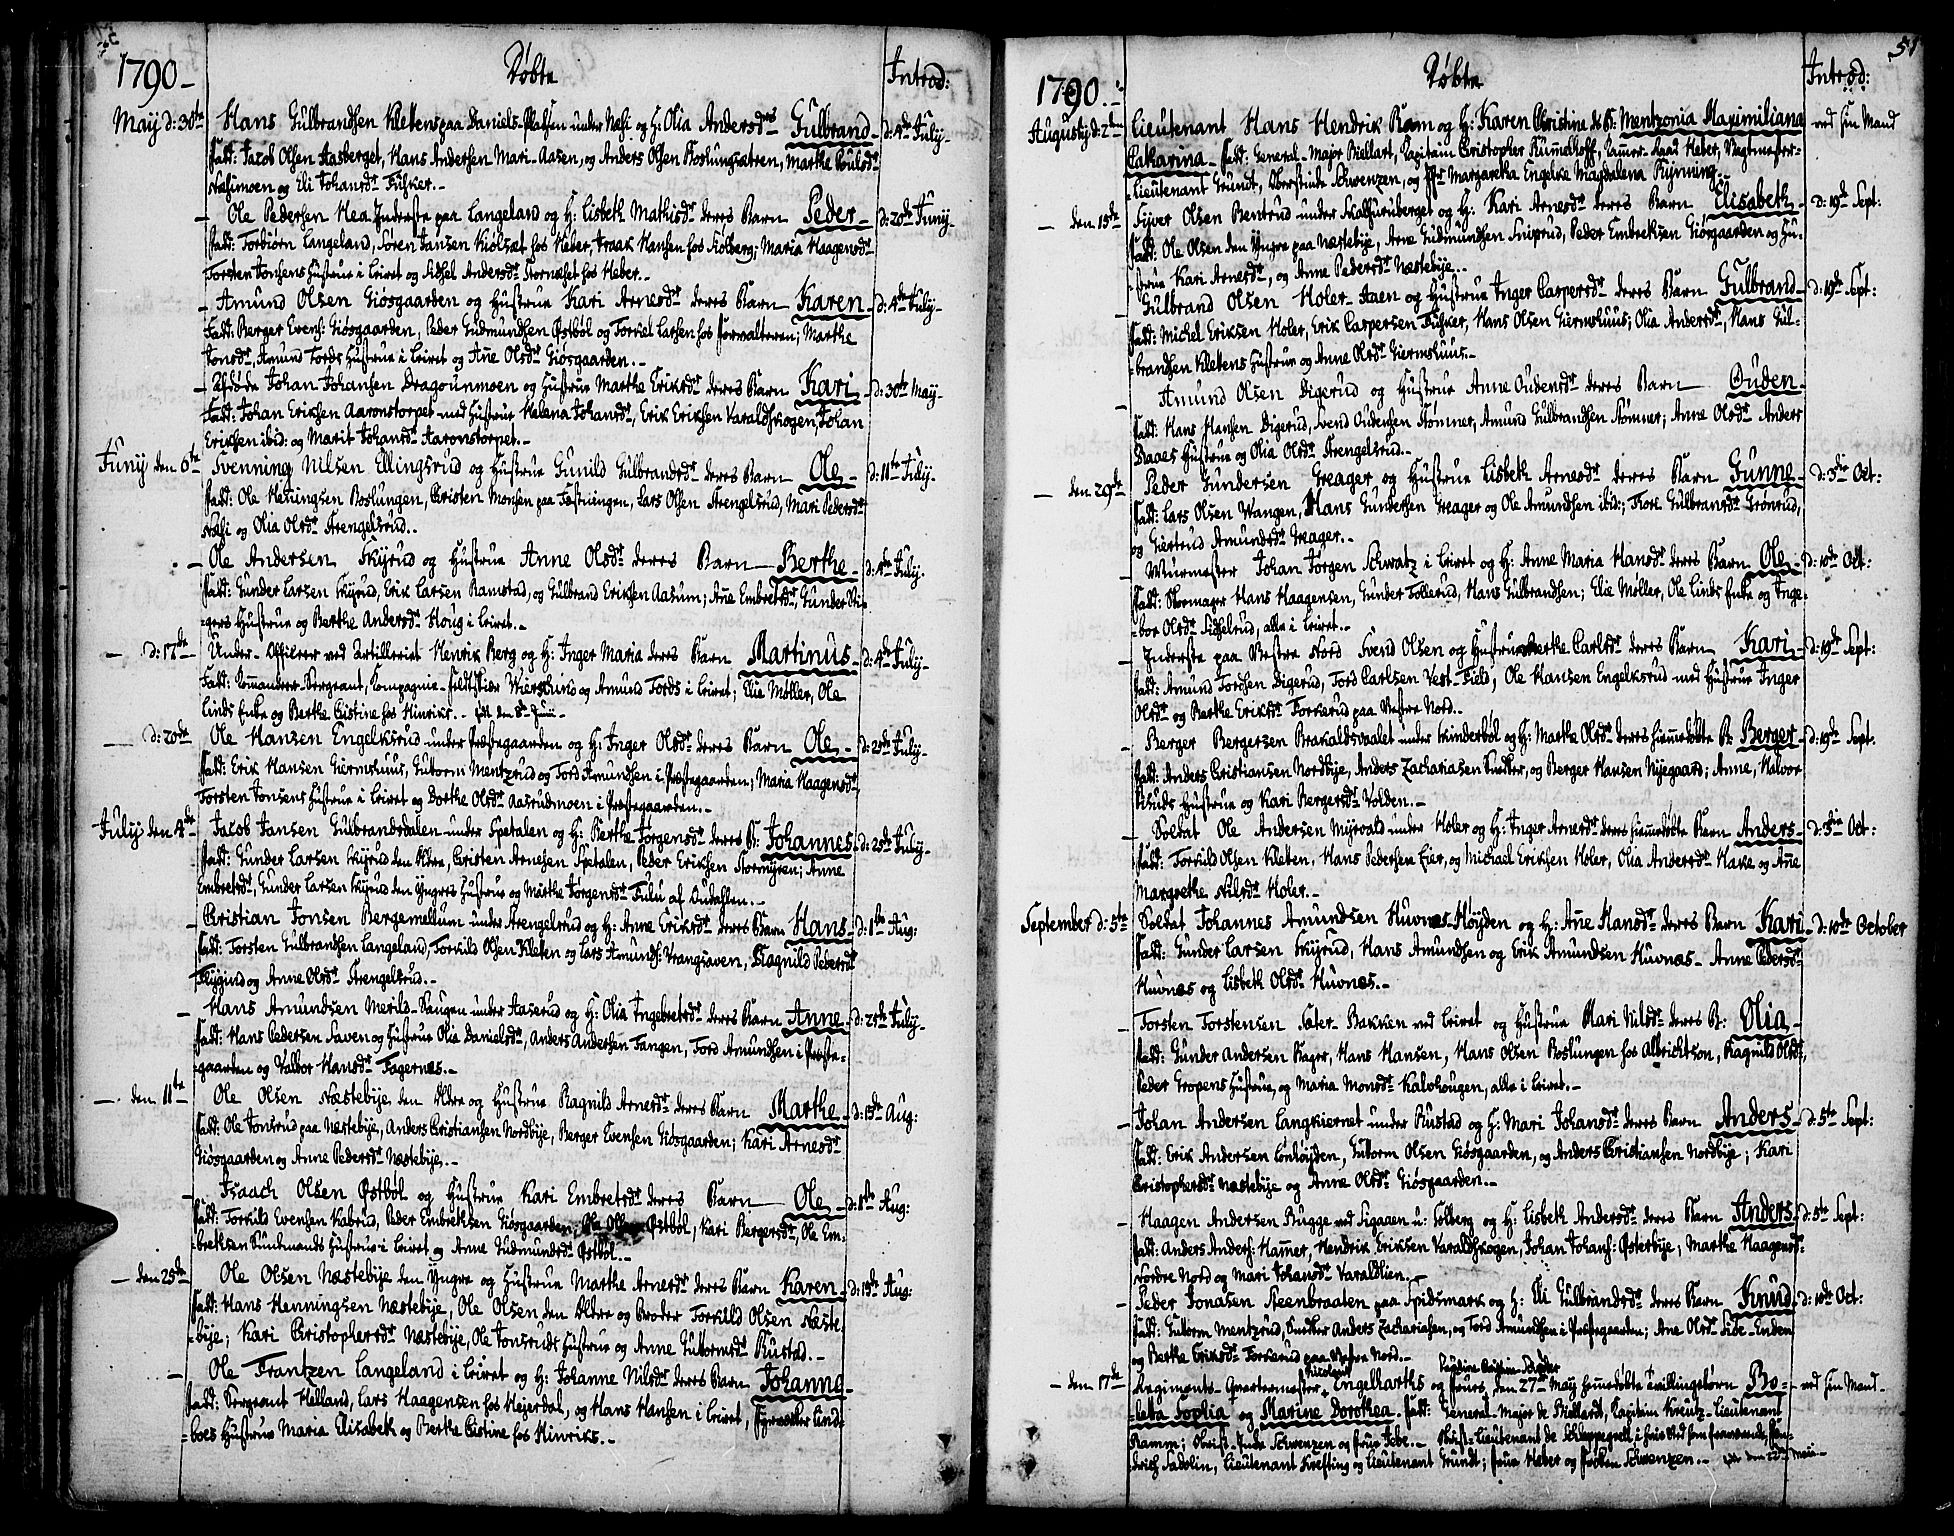 1790 –
Døbte
Introd:
May d: 30te Hans Gulbrandsen Kletens paa Daniels-Pladsen under Næsi og H: Olia Andersdtrs Gulbrand – d: 4de July –
Fadd: Jacob Olsen Aasberget, Hans Andersen Mari-Aasen, og Anders Olsen Roslungsætren, Marthe Poulsdr
Næsimoen og Eli Johansdr Fisker. –
– Ole Pedersen Hea Inderste paa Langeland og H: Lisbeth Mathisdr deres Barn Peder – d: 20de Juny –
Fadd: Torbiørn Langeland, Søren Jansen Kiølset hos Heber, Isaak Hansen hos Solberg; Maria Haagensdr
Torsten Jonsens Hustrue i Leiret og Sidsel Andersdr Stornæset hos Heber. –
– Amund Olsen Giøsgaarden og Hustrue Kari Arnesdr deres Barn Karen – d: 4de July –
Fadd: Berger Evens: Giøsgaarden, Peder Gudmundsen Østbøl og Torkel Larsen hos Forvalteren; Marthe
Jonsdr, Amund Tords Hustrue i Leiret og Ane Olsdr Giøsgaarden. –
– Afdøde Johan Johansen Dragounmoen og Hustrue Marthe Eriksdr deres Barn Kari – d: 30te May –
Fadd: Johan Eriksen Aaronstorpet med Hustrue Helena Johansdr, Erik Eriksen Varaldskogen, Johan
Eriksen ibid: og Marit Johansdr Aaronstorpet. –
Juny den 6te Svenning Nilsen Ellingsrud og Hustrue Gunild Gulbrandsdr deres Barn Ole – d: 11te July –
Fadd: Ole Henningsen Roslungen, Christen Monsen paa Festningen, Lars Olsen Strengelsrud, Mari Pedersdr
Næsi og Olia Olsdr Strengelsrud. –
– Ole Andersen Skyrud og Hustrue Anne Olsdr deres Barn – Berthe – d: 4de July.
Fadd: Gunder Larsen Skyrud, Erik Larsen Ramstad, og Gulbrand Eriksen Aasum; Ane Embretsdr, Gunder Sti-
-gers Hustrue og Berthe Andersdr Houg i Leiret. –
– d: 17de – Under-Officeer ved Artilleriet Henrik Berg og H: Inger Maria deres Barn Martinus – d: 4de July –
Fadd: Commandeer-Sergeant, Compagnie-Feldtskiær Wiershind og Amund Tords i Leiret; Elie Møller, Ole
Linds Enke og Berthe Cistine hos Hinriks. – født den 8de Juni –
– d: 20de – Ole Hansen Engelksrud under Præstegaarden og H: Inger Olsdr deres Barn Ole – d: 25de July –
Fadd: Erik Hansen Giermshuus, Gutorm Mentzrud og Tord Amundsen i Præstegaarden; Maria Haagensdr
Torsten Jonsens Hustrue i Leiret og Dorthe Olsdr Aasrudmoen i Præstegaarden. –
July den 4de – Jacob Jansen Gulbrandsdalen under Spetalen og H: Berthe Jørgensdr deres B: Johannes – d: 25de July –
Fadd: Gunder Larsen Skyrud den Eldre, Christen Arnesen Spetalen, Peder Eriksen Stormyren; Anne
Embretsdr, Gunder Larsen Skyrud den Yngres Hustrue og Marthe Jørgensdr Fulu af Oudahlen. –
– Christian Jonsen Bergemellum under Strengelsrud og H: Anne Eriksdr deres Barn Hans – d: 1ste Aug:
Fadd: Torsten Gulbrandsen Langeland, Torkild Olsen Kleten og Lars Amunds: Vrangsaven, Ragnild Pedersdr
Flygind og Anne Olsdr Strengelsrud. –
– Hans Amundsen Merild-Haugen under Aaserud og H: Olia Ingebretsdr deres Barn Anne – d: 25de July –
Fadd: Hans Pedersen Saven og Hustrue Olia Danielsdr, Anders Andersen Tangen, Tord Amundsen i Præste-
-gaarden og Valbor Hansdr Fagernæs. –
– den 11te Ole Olsen Næstebye den Eldre og Hustrue Ragnild Arnesdr deres Barn Marthe – d: 15de Aug:
Fadd: Ole Jonsrud paa Næstebye, Anders Christiansen Nordbye, Berger Evensen Giøsgaarden; Kari Arnesdr
Giøsgaarden og Anne Pedersdr Næstebye. –
– Isaach Olsen Østbøl og Hustrue Kari Embretsdr deres Barn Ole – d: 8de Aug:
Fadd: Torkild Evensen Kabrud, Peder Embretsen Giøsgaarden, Ole Olsen Østbøl, Kari Bergersdr, Ole Em-
bretsen Hustrue i Leiret og Anne Gudmundsdr Østbøl. –
– den 25de Ole Olsen Næstebye den Yngre og Hustrue Marthe Arnesdr deres Barn Karen – d: 15de Aug:
Fadd: Hans Henningsen Næstebye, Ole Olsen den Eldre og Broder Torkild Olsen Næste-
-bye; Kari Christophersdr Næstebye, Ole Jonsruds Hustrue og Anne Gutormsdr Rustad. –
– Ole Frantzen Langeland i Leiret og H: Johanne Nilsdr deres Barn Johanne –
Fadd: Sergeant Helland, Lars Haagensen hos Hejerdal, og Hans Hansen i Leiret, Lind-
boes Hustrue Maria Elisabeth og Berthe Cistine hos Hinriks. –
51
1790. –
Døbte
Introd:
Augusty d: 2den Lieutenant Hans Hendrik Ram og H: Karen Christine B: Mentzonia Maximiliana ved sin Mand
Catharina – Fadd: General-Major Biellart, Capitain Christopher Rummelhoff, Cammer-Raad Heber, Vagtmester-
-Lieutenant Grundt, Oberstinde Schwenzen, og Margaretha Engelke Magdalena Rynning. –
– den 15de Syver Olsen Bentrud under Skalfuruberget og H: Kari Arnesdr deres Barn Elisabeth – d: 19de Sept:
Fadd: Ole Olsen den Yngre paa Næstebye, Arne Gudmundsen Sniprud, Peder Embretsen Giøsgaarden og Hu-
strue Kari Arnesdr, og Anne Pedersdr Næstebye. –
– Gulbrand Olsen Holer-Aaen og Hustrue Inger Caspersdr deres Barn Gulbrand – d: 19de Sept:
Fadd: Michel Eriksen Holer, Erik Caspersen Fisker, Hans Olsen Giermshuus; Olia Andersdr, Hans Gul-
brandsen Kletens Hustrue og Anne Olsdr Giermshuus. –
– Amund Olsen Digerud og Hustrue Anne Oudensdr deres Barn – Ouden –
Fadd: Hans Hansen Digerud, Svend Oudensen Stømner, Amund Gulbrandsen Stømner; Anne Olsdr Anders
Braaes Hustrue og Olia Olsdr Strengelsrud. –
– den 29de Peder Gundersen Greager og Hustrue Lisbeth Arnesdr deres Barn Gunne – d: 3die Oct:
Fadd: Lars Olsen Vangen, Hans Gundersen Greager og Ole Amundsen ibid:; Tore Gulbransdr Grønrud,
og Giertrud Amundsdr Greager. –
– Muurmester Johan Jørgen Schwatz i Leiret og H: Anne Maria Hansdr deres Barn Ole – d: 10de Oct:
Fadd: Skomager Hans Haagensen, Gunder Tollerud, Hans Gulbrandsen; Elie Møller, Ole Linds Enke og Inge-
-bor Olsdr Sidselrud, alle i Leiret. –
– Inderste paa Vestre Nord Svend Olsen og Hustrue Berthe Carlsdr deres Barn Kari – d: 19de Sept:
Fadd: Amund Tordsen Digerud, Tord Carlsen Vest-Field, Ole Hansen Engelksrud med Hustrue Inger
Olsdr og Berthe Eriksdr Torkerud paa Vestre Nord. –
– Berger Bergersen Brakaldsvaalet under Skinderbøl og H: Marthe Olsdr deres hiemmedøbte B: Berger – d: 19de Sept:
Fadd: Anders Christiansen Nordbye, Anders Zachariasen Snedker, og Berger Hansen Nyegaard; Anne, Halvor
Hustrue og Kari Bergersdr Volden. –
– Soldat Ole Andersen Myrvald under Holer og H: Inger Arnesdr deres hiemmedøbte Barn Anders – d: 3die Oct:
Fadd: Torkild Olsen Kleten, Hans Pedersen Eier, og Michael Eriksen Holer, Olia Andersdr Hake og Ane
Margrethe Nilsdr Holer.
September d: 5te Soldat Johannes Amundsen Huvnæs-Høyden og H: Ane Hansdr deres Barn Kari – d: 10de October
Fadd: Gunder Larsen Skyrud, Hans Amundsen og Erik Amundsen Huvnæs – Anne Pedersdr
Huvnæs og Lisbeth Olsdr Huvnæs. –
– Torsten Torstensen Sæter-Bakken ved Leiret og Hustrue Mari Nilsdr deres B: Olia –
Fadd: Gunder Andersen Kager, Hans Hansen, Hans Olsen Roslungen hos Albrichtson, Ragnild Olsdr,
Peder Gropens Hustrue, og Maria Monsdr Kalvhougen, alle i Leiret. –
– Johan Andersen Langkiernet under Rustad og H: Mari Johansdr deres Barn Anders – d: 5te Sept:
Fadd: Erik Andersen Lønhøyden, Gutorm Olsen Giøsgaarden, og Anders Christiansen Nordbye; Kari
Christophersdr Næstebye og Anne Olsdr Giøsgaarden. –
– Haagen Andersen Bugge ved Sigaaen u: Solberg og H: Lisbeth Andersdr deres Barn Anders – d: 5te Sept:
Fadd: Anders Anders: Hammer, Hendrik Eriksen Varaldskogen, Johan Johans: Østerbye, Marthe Haagensdr
Nordre Nord og Mari Johansdr Varaldlien. –
– Peder Jonasen Steenbraaten paa Spidsmark og H: Eli Gulbrandsdr deres Barn Knud – d: 10de Oct:
Fadd: Gutorm Mentzrud, Snedker Anders Zachariasen, og Tord Amundsen i Præstegaarden; Ane Olsdr Side-Enden
og Berthe Eriksdr Torkerud paa Vestre Nord. –
– den 17de Regiments-Quartermester Engelharths og Frues, den 27de May hiemmedøbte Tvillingebørn Bo- – ved sin Mand –
-letta Sophia og Marine Dorothea. Fadd: General-Major de Biellardt, Capitain Kreutz-Lieutenant
Ramm; Obrist-inde Schwenzen og Frue Jebe. – Obrist-Lieutenant de Schleppegrell i hvis Sted frem
-drich Sadolin, Lieutenant Krefting og Lieutenant Grundt; Frue Heber og Frøken Schwenzen. – født den 22de Mai –